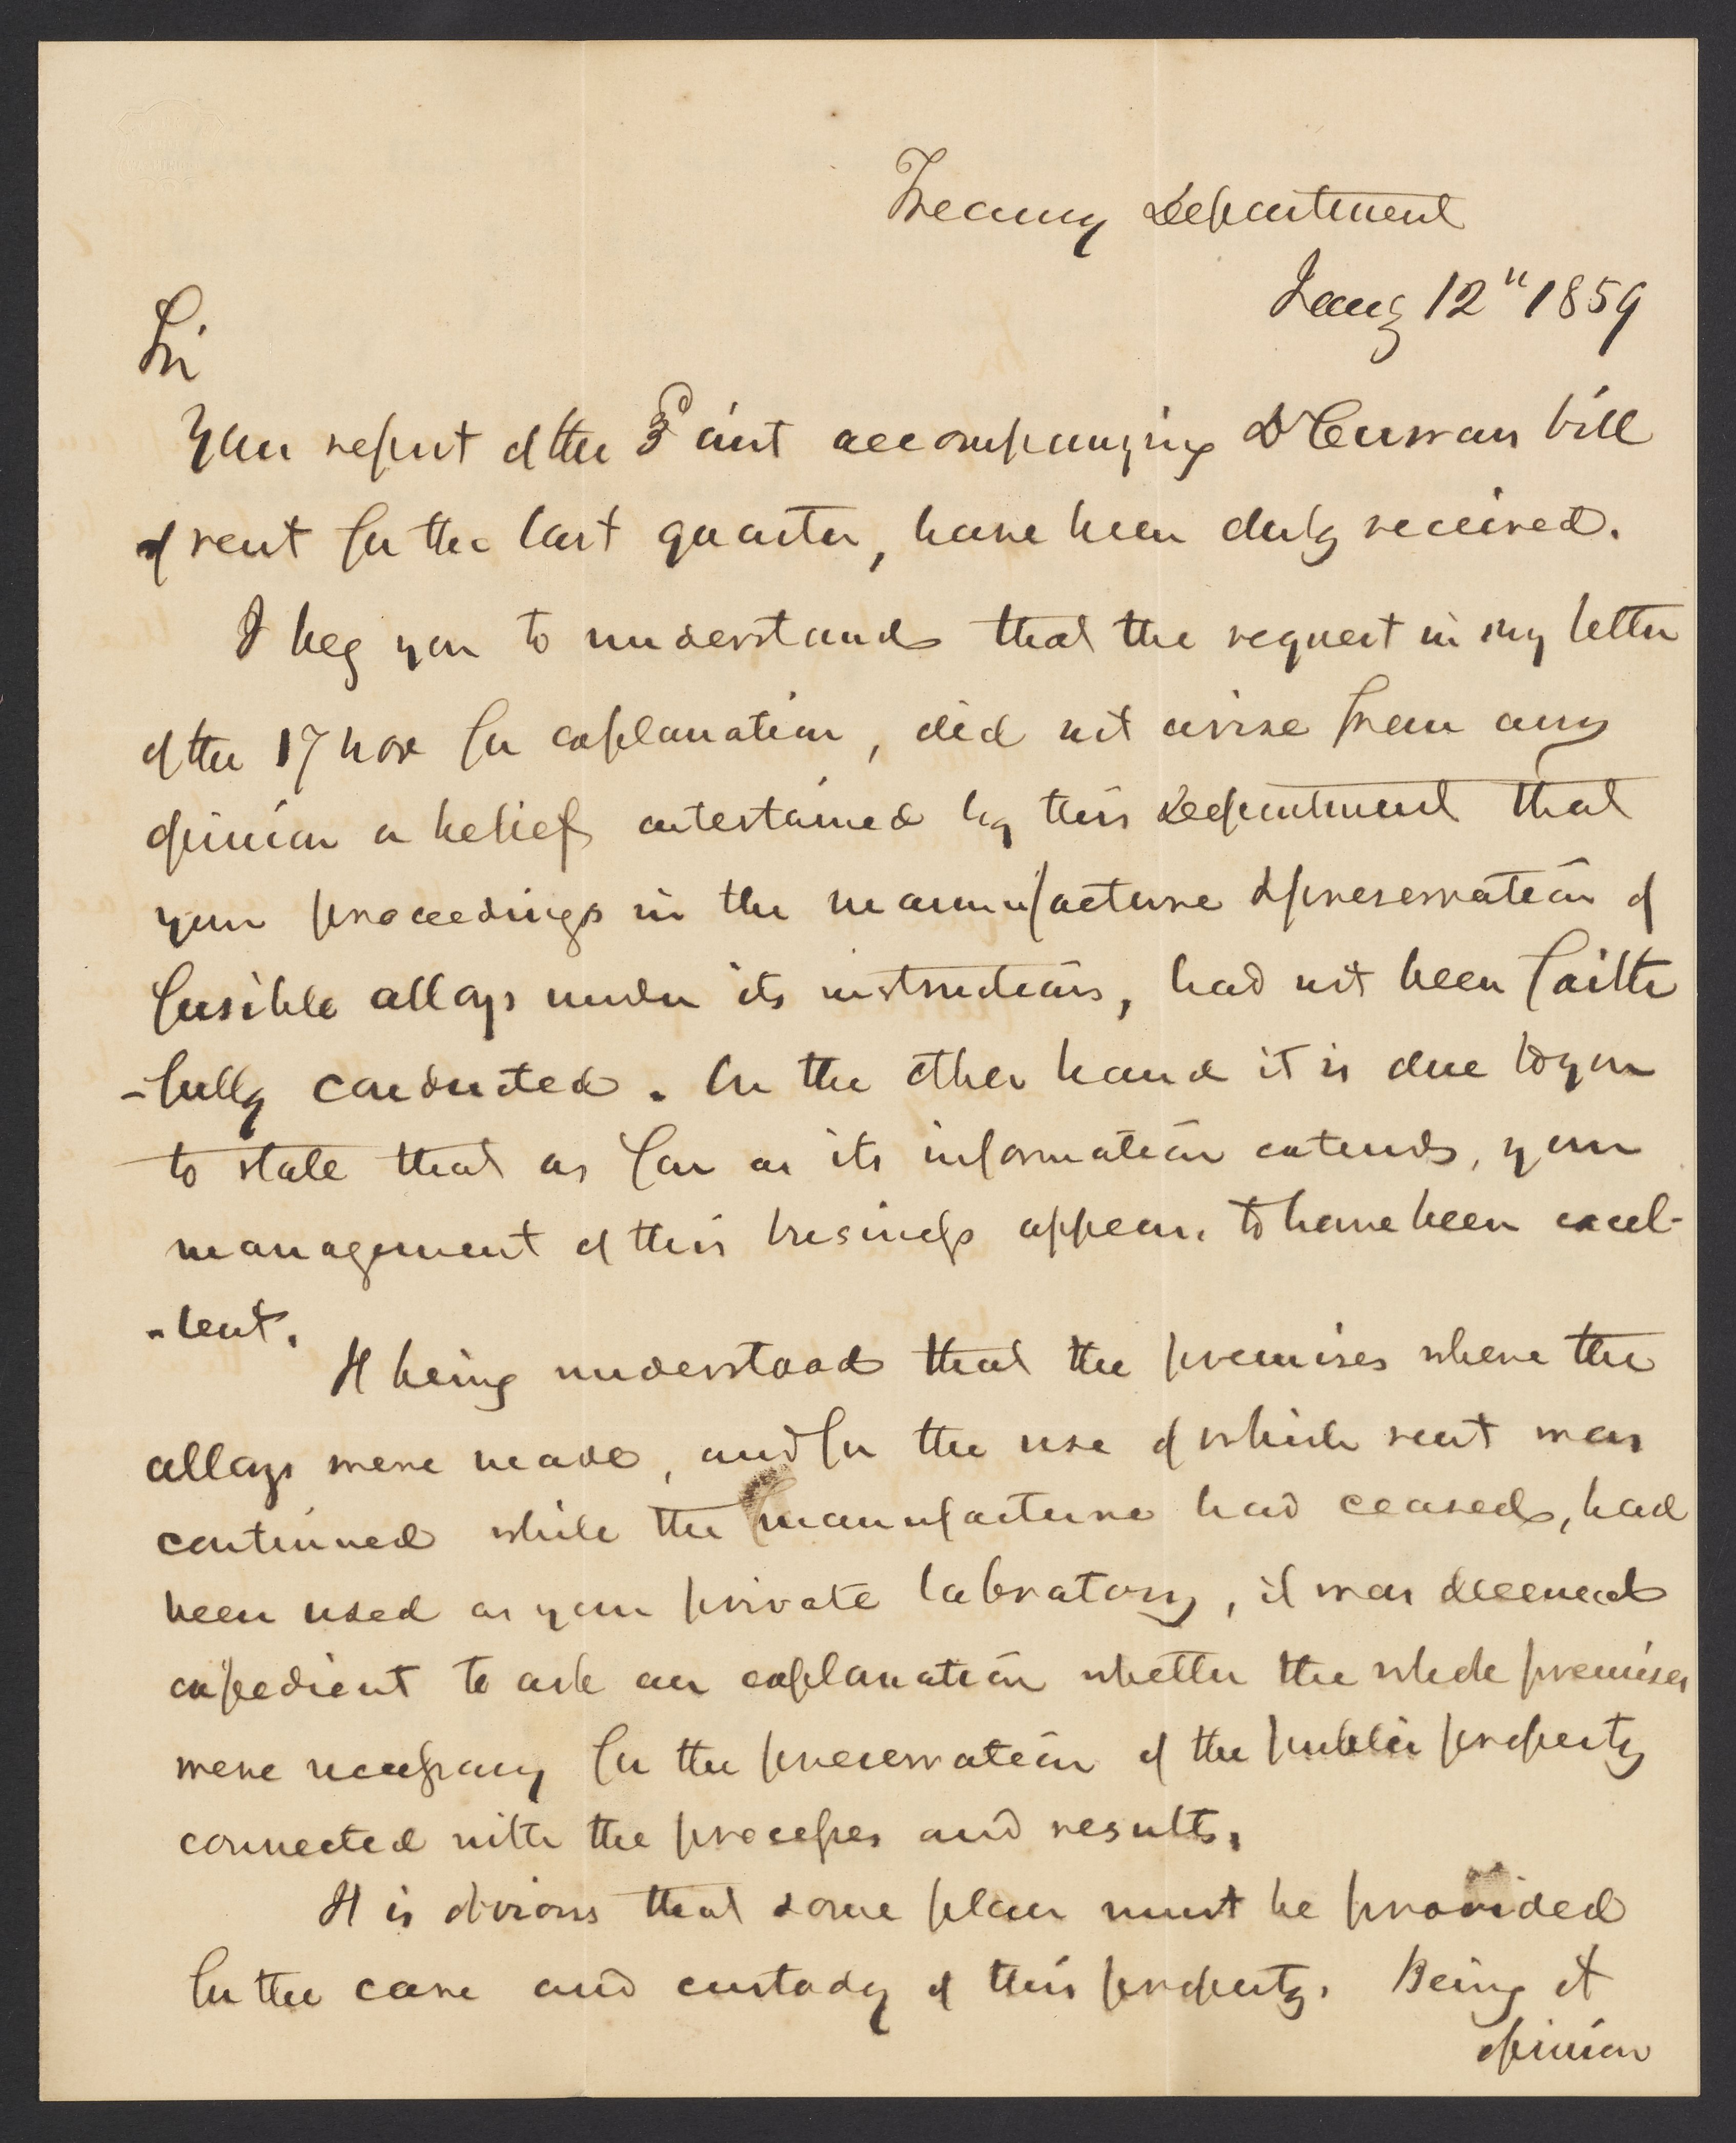 Treasury Department
Jany 12" 1859
Sir
Your report of the 3d inst accompanying Dr Curran bill
of rent for the last quarter, have been duly received.
I beg you to understand that the request in my letter
of the 17 Nov for explanation, did not arise from any
opinion or belief entertained by this Department that
your proceedings in the manufacture & preservation of
fusible alloys under its instructions, had not been faith
-fully conducted. On the other hand it is due to you
to state that as far as its information extends, your
management of this business appears to have been excel-
-lent.
It being understood that the premises where the
alloys were made, and for the use of which rent was
continued while the manufacture had ceased, had
been used as your private labratory, it was deemed
expedient to ask an explanation whether the whole premises
were necessary for the preservation of the public property
connected with the processes and results.
It is obvious that some plan must be provided
for the care and custody of this property. Being of
opinion